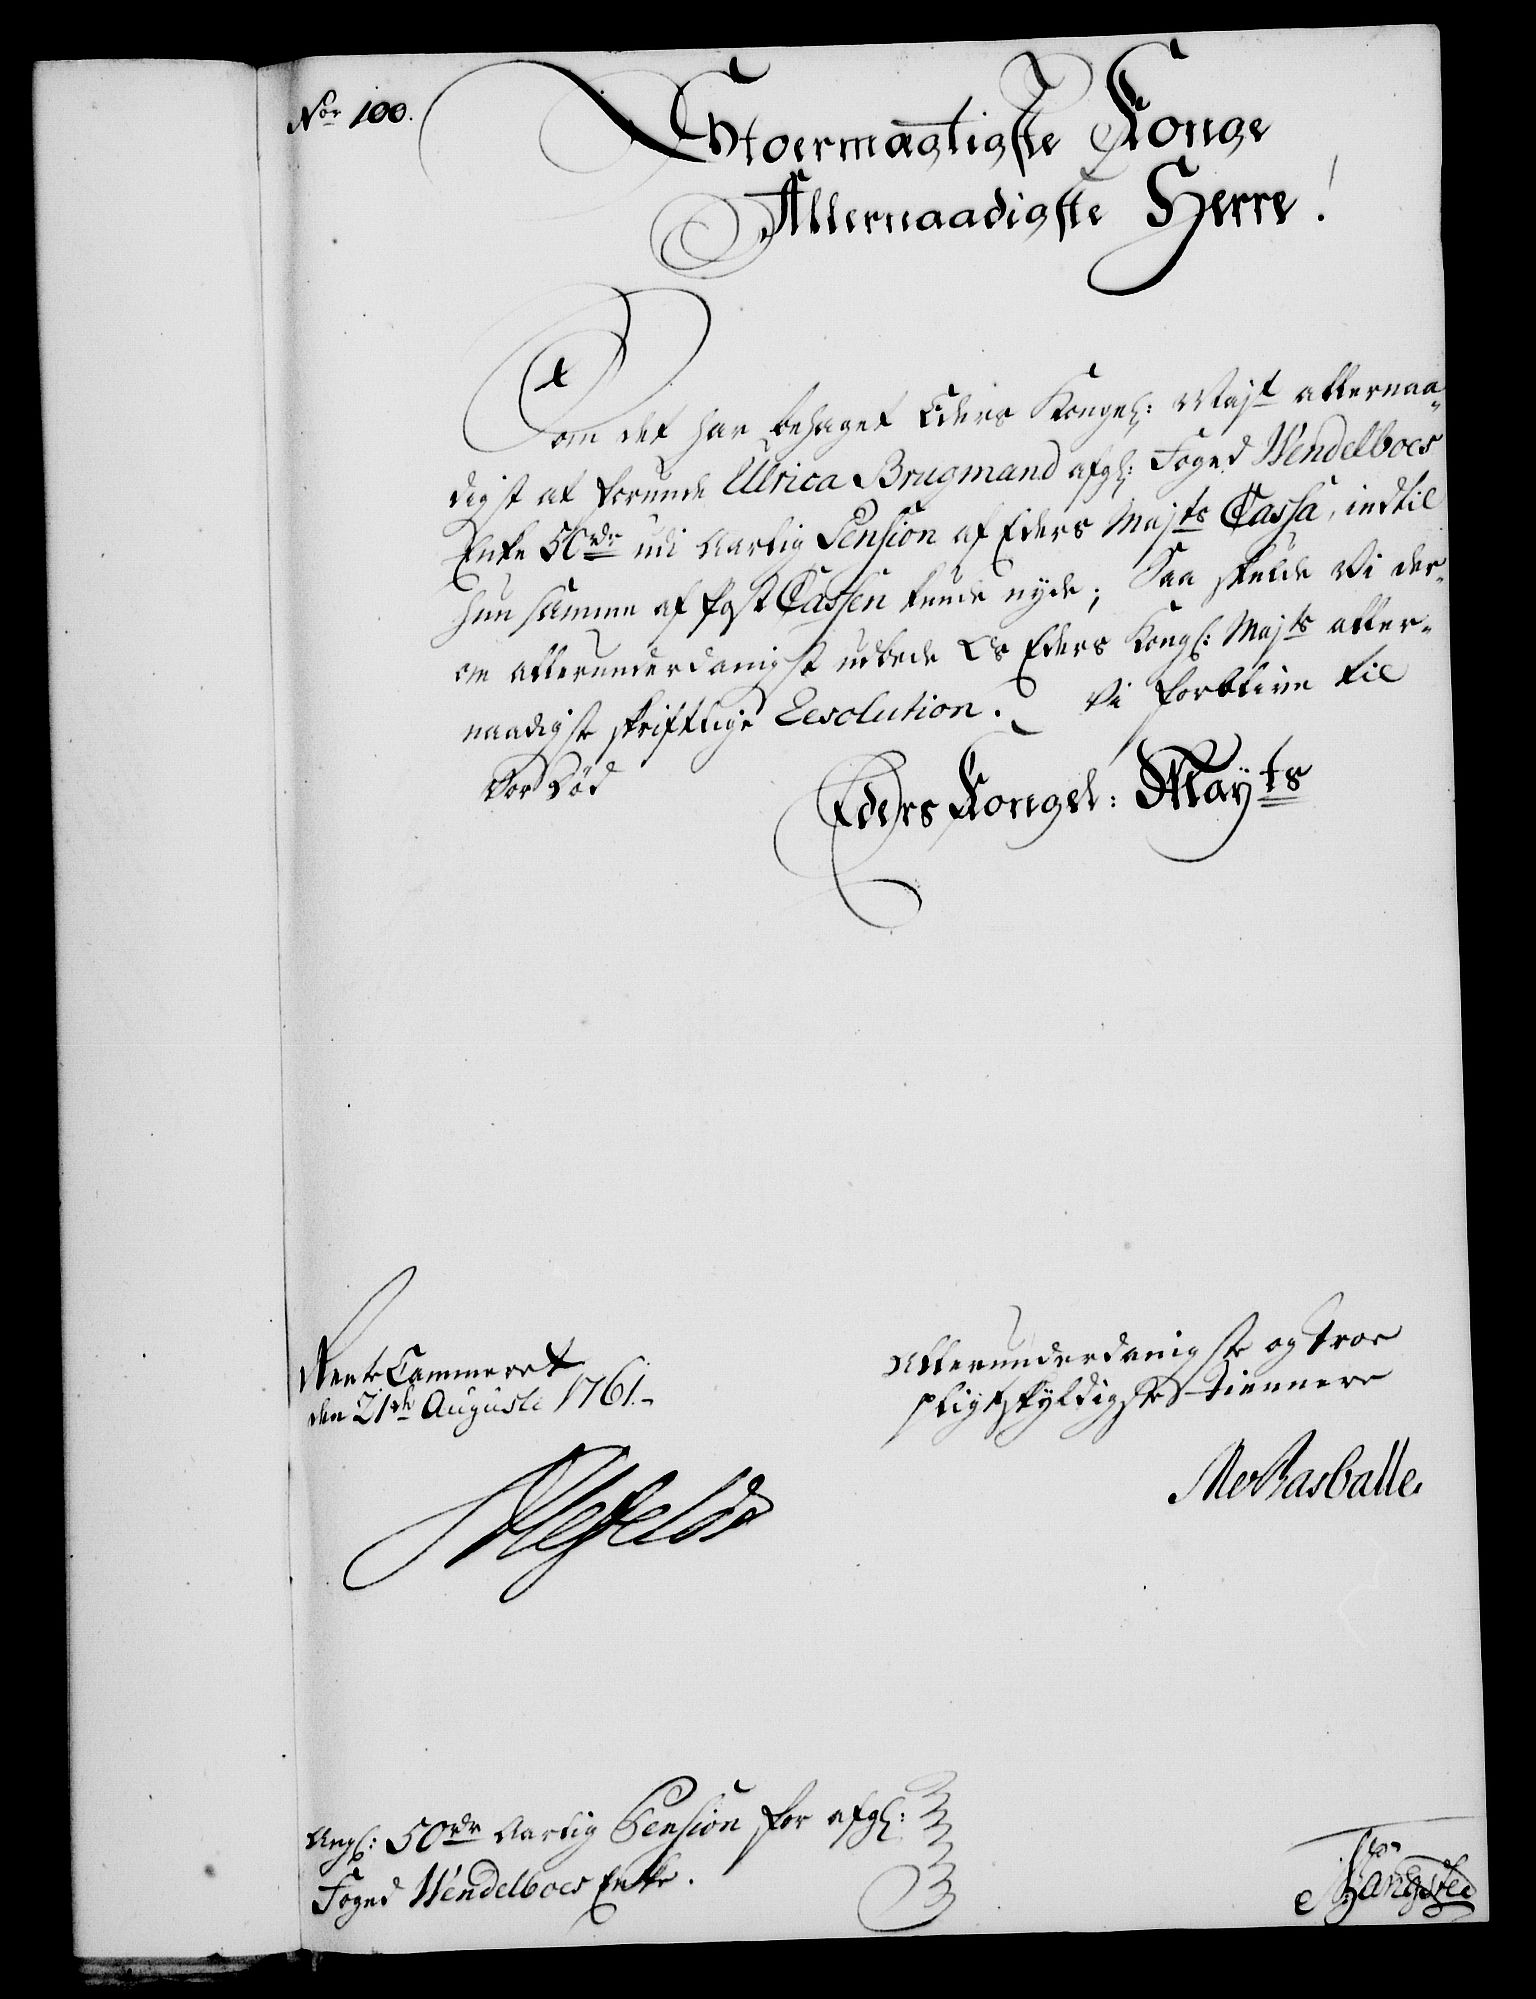 Nor 100.
Stoermægtigste Konge
Allernaadigste Herre!
Som det har behaget Eders Kongel: Majt allernaa-
digst at forunde Ulrica Brugmand afgl: Foged Wendelboes
Enke 50 rdr udi Aarlig Pension af Eders Majts Cassa, indtil
hun samme af Post Cassen kunde nyde; Saa skulde Vi der-
om allerunderdanigst udbede Os Eders Kongl: Majts aller-
naadigste skriftlige Resolution. Vi forblive til
Vor Død
Eders Kongel: Mayts
Rente Cammeret
den 21de Augusti 1761.
Allerunderdanigste og troe
pligtskyldigste Tiennere
Ahlefeldt
Angl: 50 rdr Aarlig Pension for afgl:
Foged Wendelboes Enke.